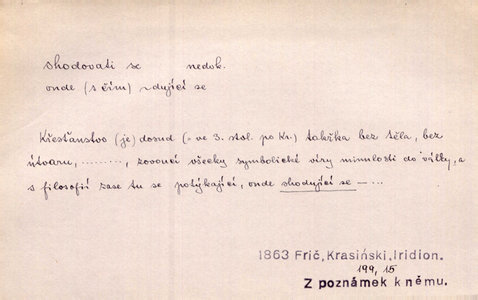 shodovati se nedok.
onde (s čím) ~dující se
Křesťanstvo (je) dosud (= ve 3. stol. po Kr.) takřka bez těla, bez
útvaru, ........., zovoucí všecky symbolické víry minulosti do války, a
s filosofií zase tu se potýkající, onde shodující se – ...
1863 Frič, Krasiński, Iridion.
199, 15
Z poznámek k němu.